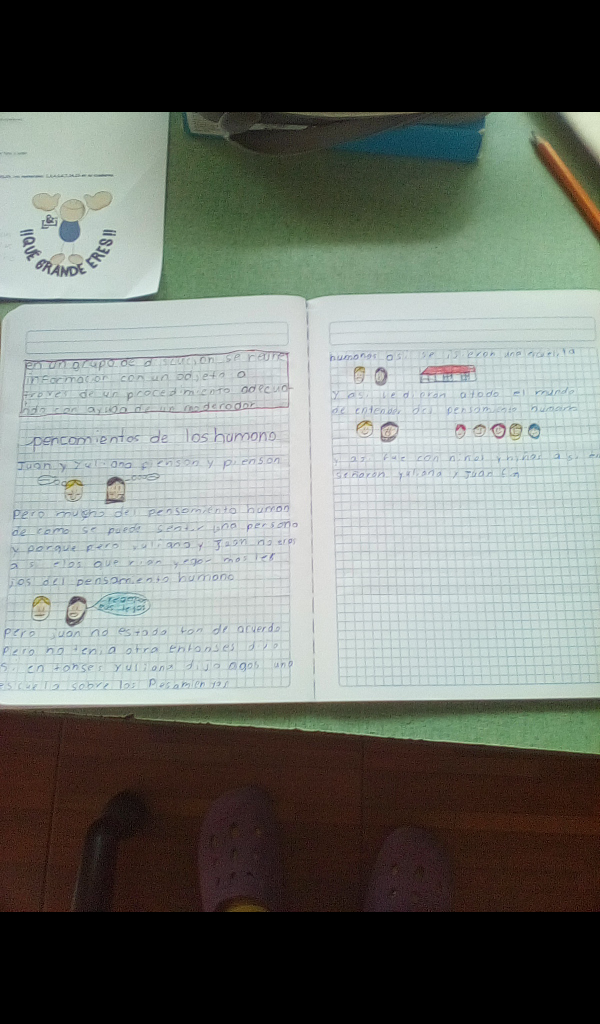 ¡¡QUÉ GRANDE ERES!!
en un grupo de discución se reune
informacion con un objeto a
traves de un procedimiento adecua
ndo con ayuda de un moderador
pencamientos de los humano
Juan y Yuliana piensan y piensan
pero mucho del pensamiento human
de como se puede sentir una persona
y porque pero yuliana y Juan no eran
a si elos querian yegar mas lej
jos del pensamiento humano
pero juan no estada tan de acuerdo
pero no tenia otra entonses dijo
si entonses yuliana dijo agos una
escuela sobre los Pesamientos
humanos asi se isieron una escuelita
Y asi le dieron a todo el mundo
de entender del pensamiento humano
y asi fue con niños y niñas a si
señaron yuliana y Juan fin